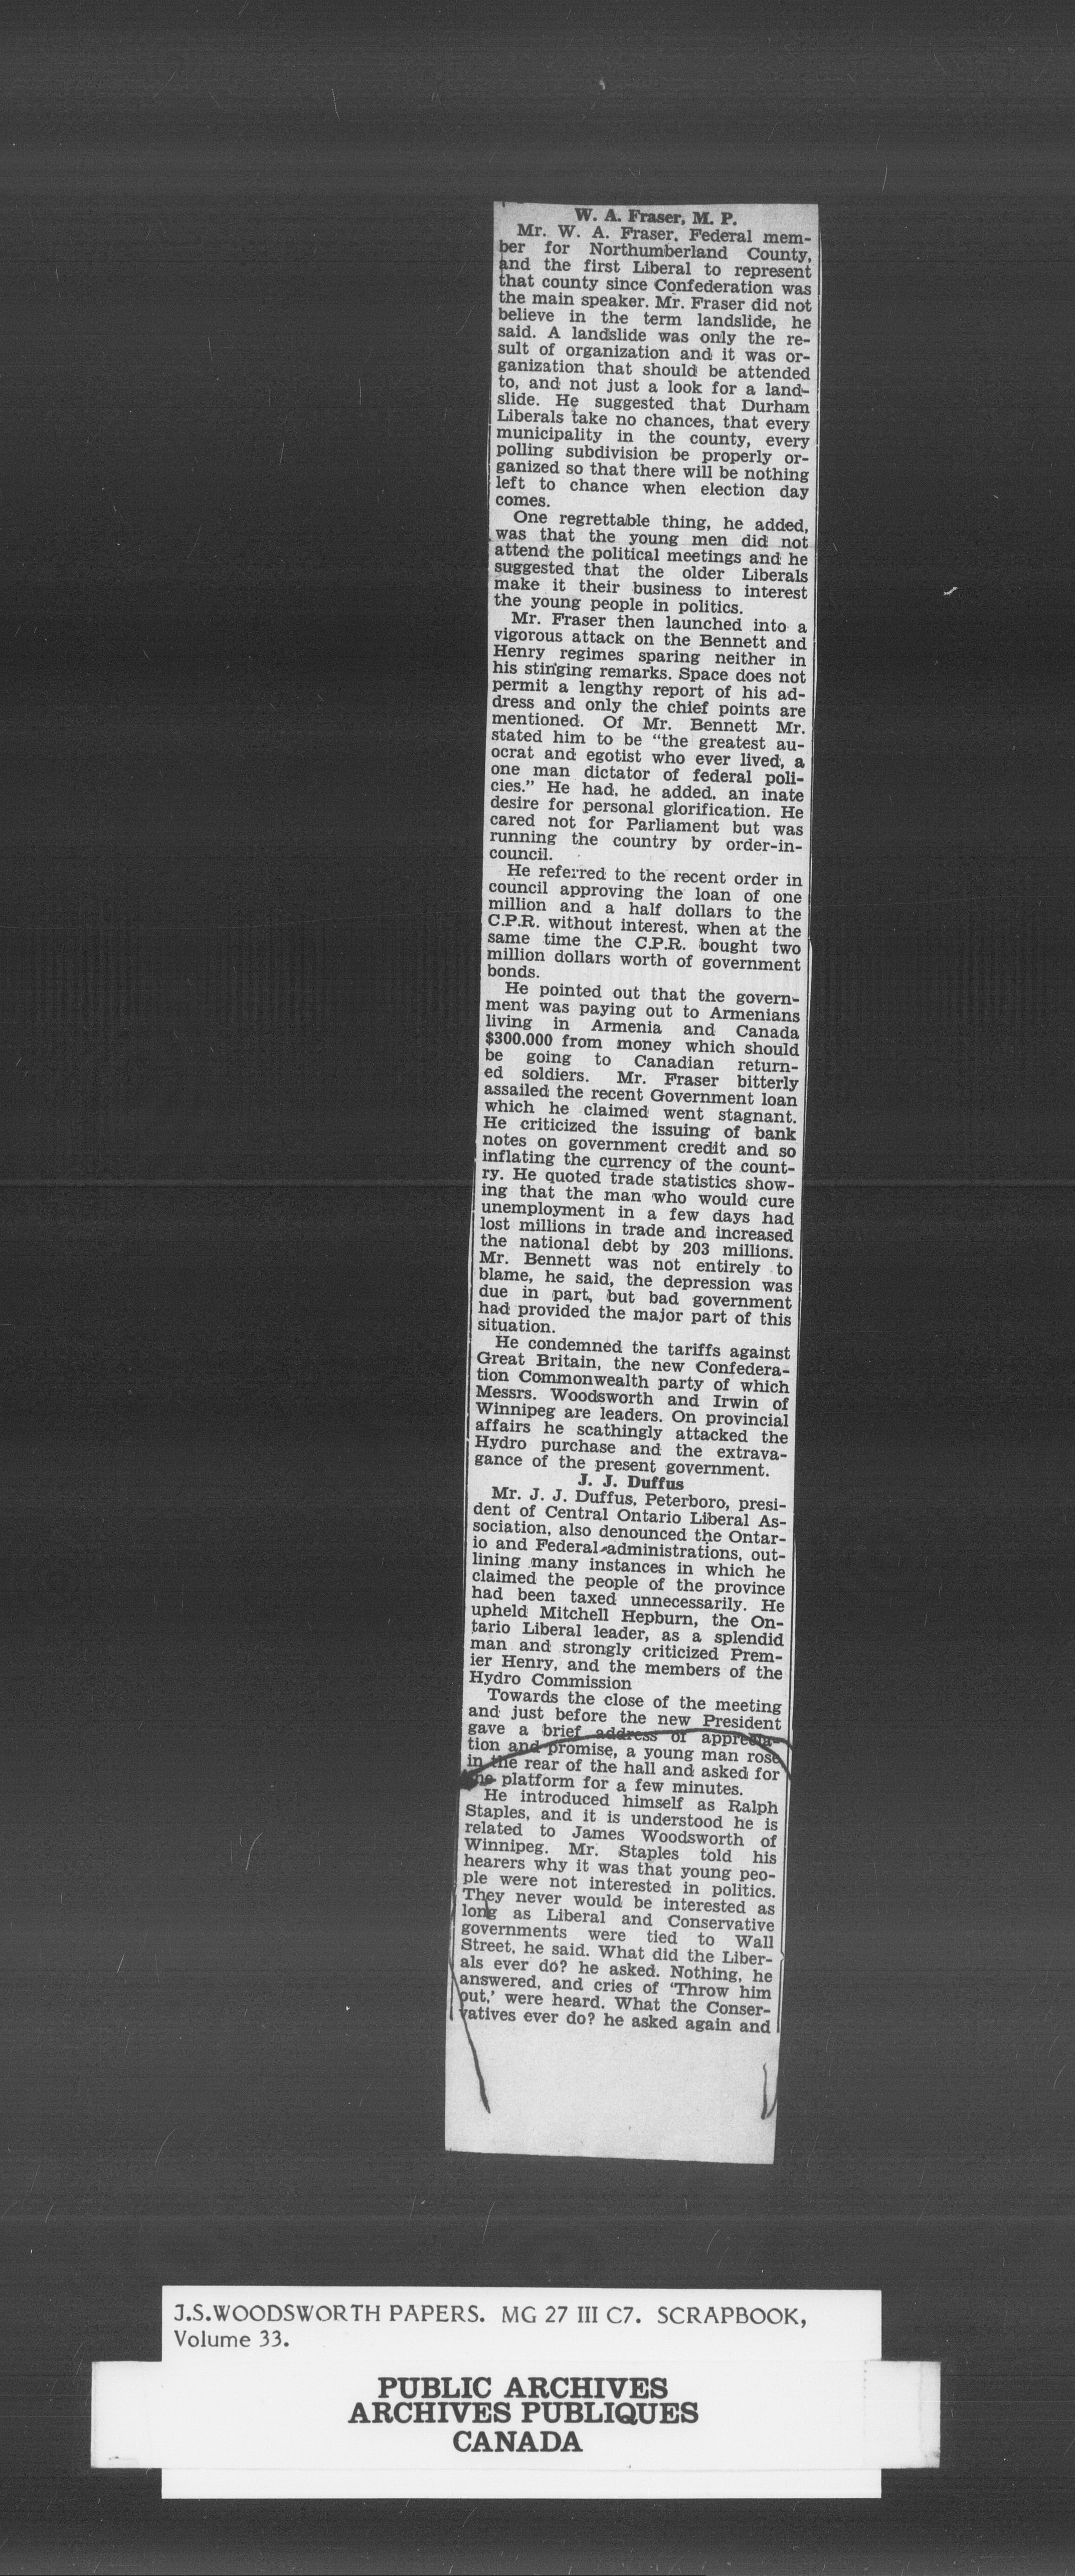 W. A. Fraser, M. P.
Mr. W. A. Fraser, Federal mem-
ber for Northumberland County,
and the first Liberal to represent
that county since Confederation was
the main speaker. Mr. Fraser did not
believe in the term landslide, he
said. A landslide was only the re-
sult of organization and it was or-
ganization that should be attended
to, and not just a look for a land-
slide. He suggested that Durham
Liberals take no chances, that every
municipality in the county, every
polling subdivision be properly or-
ganized so that there will be nothing
left to chance when election day
comes.
One regrettable thing, he added,
was that the young men did not
attend the political meetings and he
suggested that the older Liberals
make it their business to interest
the young people in politics.
Mr. Fraser then launched into a
vigorous attack on the Bennett and
Henry regimes sparing neither in
his stinging remarks. Space does not
permit a lengthy report of his ad-
dress and only the chief points are
mentioned. Of Mr. Bennett Mr.
stated him to be "the greatest au-
ocrat and egotist who ever lived, a
one man dictator of federal poli-
cies." He had, he added, an inate
desire for personal glorification. He
cared not for Parliament but was
running the country by order-in-
council.
He referred to the recent order in
council approving the loan of one
million and a half dollars to the
C.P.R. without interest, when at the
same time the C.P.R. bought two
million dollars worth of government
bonds.
He pointed out that the govern-
ment was paying out to Armenians
living in Armenia and Canada
$300,000 from money which should
be going to Canadian return-
ed soldiers. Mr. Fraser bitterly
assailed the recent Government loan
which he claimed went stagnant.
He criticized the issuing of bank
notes on government credit and so
inflating the currency of the count-
ry. He quoted trade statistics show-
ing that the man who would cure
unemployment in a few days had
lost millions in trade and increased
the national debt by 203 millions.
Mr. Bennett was not entirely to
blame, he said, the depression was
due in part, but bad government
had provided the major part of this
situation.
He condemned the tariffs against
Great Britain, the new Confedera-
tion Commonwealth party of which
Messrs. Woodsworth and Irwin of
Winnipeg are leaders. On provincial
affairs he scathingly attacked the
Hydro purchase and the extrava-
gance of the present government.
J. J. Duffus
Mr. J. J. Duffus, Peterboro, presi-
dent of Central Ontario Liberal As-
sociation, also denounced the Ontar-
io and Federal administrations, out-
lining many instances in which he
claimed the people of the province
had been taxed unnecessarily. He
upheld Mitchell Hepburn, the On-
tario Liberal leader, as a splendid
man and strongly criticized Prem-
ier Henry, and the members of the
Hydro Commission
Towards the close of the meeting
and just before the new President
gave a brief address of apprecia-
tion and promise, a young man rose
in the rear of the hall and asked for
the platform for a few minutes.
He introduced himself as Ralph
Staples, and it is understood he is
related to James Woodsworth of
Winnipeg. Mr. Staples told his
hearers why it was that young peo-
ple were not interested in politics.
They never would be interested as
long as Liberal and Conservative
governments were tied to Wall
Street, he said. What did the Liber-
als ever do? he asked. Nothing, he
answered, and cries of 'Throw him
out,' were heard. What the Conser-
vatives ever do? he asked again and
J.S.WOODSWORTH PAPERS. MG 27 III C7. SCRAPBOOK,
Volume 33.
PUBLIC ARCHIVES
ARCHIVES PUBLIQUES
CANADA